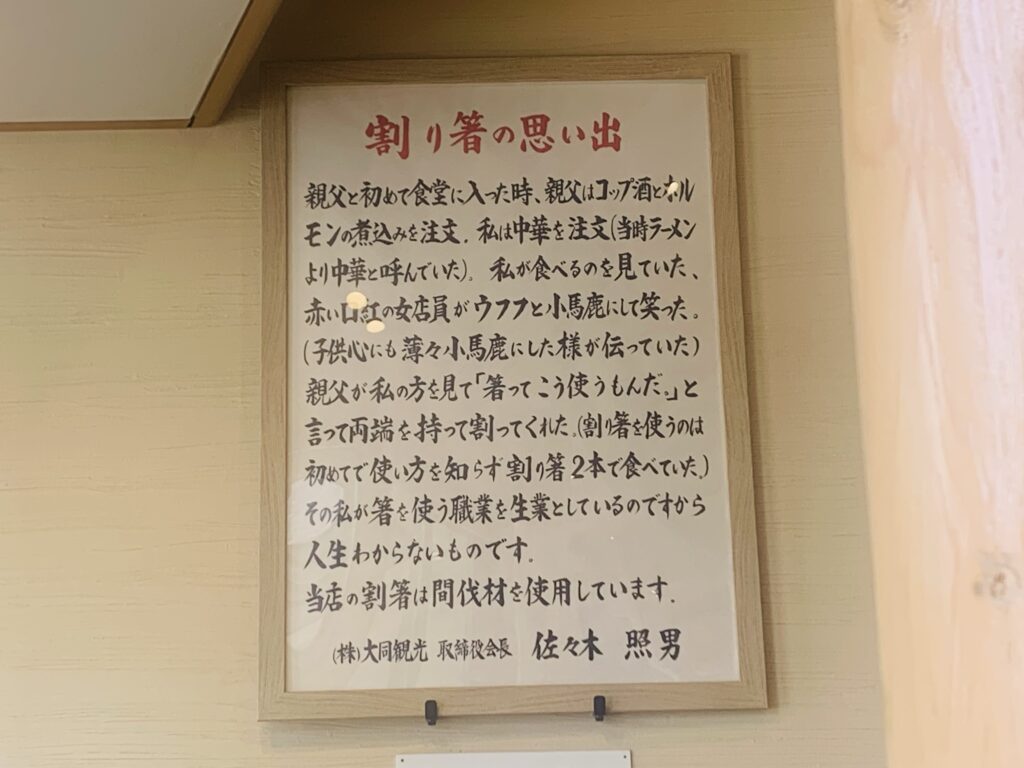 割り箸の思い出
親父と初めて食堂に入った時、親父はコップ酒とホル
モンの煮込みを注文．私は中華を注文(当時ラーメン
より中華と呼んでいた)。私が食べるのを見ていた、
赤い口紅の女店員がウフフと小馬鹿にして笑った。
(子供心にも薄々小馬鹿にした様が伝っていた)
親父が私の方を見て「箸ってこう使うもんだ。」と
言って両端を持って割ってくれた。(割り箸を使うのは
初めてで使い方を知らず割り箸2本で食べていた。)
その私が箸を使う職業を生業としているのですから
人生わからないものです．
当店の割箸は間伐材を使用しています．
(株)大同観光 取締役会長 佐々木 照男